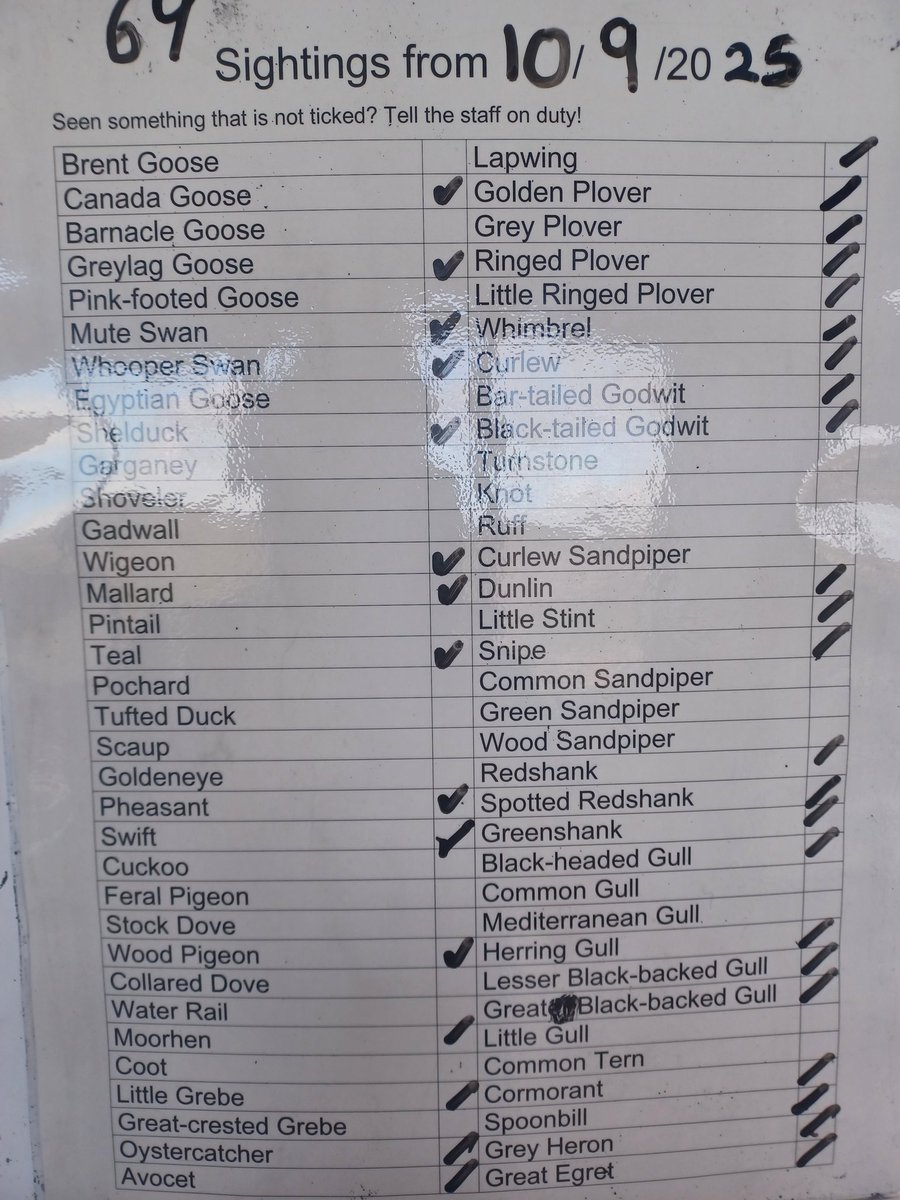 Sightings from 10/ 9 /20 25
Seen something that is not ticked? Tell the staff on duty!
Brent Goose Lapwing
Canada Goose Golden Plover
Barnacle Goose Grey Plover
Greylag Goose Ringed Plover
Pink-footed Goose Little Ringed Plover
Mute Swan Whimbrel
Whooper Swan Curlew
Egyptian Goose Bar-tailed Godwit
Shelduck Black-tailed Godwit
Garganey Turnstone
Shoveler Knot
Gadwall Ruff
Wigeon Curlew Sandpiper
Mallard Dunlin
Pintail Little Stint
Teal Snipe
Pochard Common Sandpiper
Tufted Duck Green Sandpiper
Scaup Wood Sandpiper
Goldeneye Redshank
Pheasant Spotted Redshank
Swift Greenshank
Cuckoo Black-headed Gull
Feral Pigeon Common Gull
Stock Dove Mediterranean Gull
Wood Pigeon Herring Gull
Collared Dove Lesser Black-backed Gull
Water Rail Great Black-backed Gull
Moorhen Little Gull
Coot Common Tern
Little Grebe Cormorant
Great-crested Grebe Spoonbill
Oystercatcher Grey Heron
Avocet Great Egret